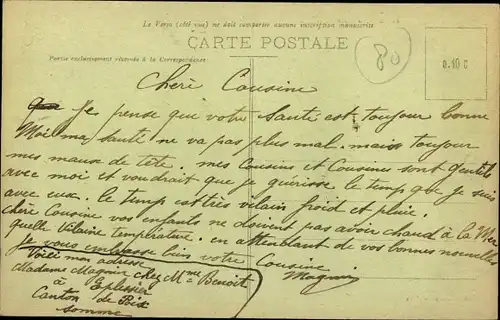 Le Verso (côté vue) ne doit comporter aucune inscription manuscrite
CARTE POSTALE
Partie exclusivement réservée à la Correspondance
80
0.10 c
Chère Cousine
Je pense qui votre Santé est toujour bonne
Moi ma santé ne va pas plus mal. mais toujour
mes maux de tête. mes Cousins et Cousines sont gentils
avec moi et voudrait que je guérisse le temp que je suis
avec eux. le temp est très vilain froid et pluie.
Chère Cousine vos enfants ne doivent pas avoir chaud à la Mer
quelle vilaine température. en attendant de vos bonnes nouvelles
Je vous embrasse bien votre Cousine
Magnier
Voici mon adresse
Madame Magnier chez Mme Benoit
à Eplessier
Canton de Poix
Somme